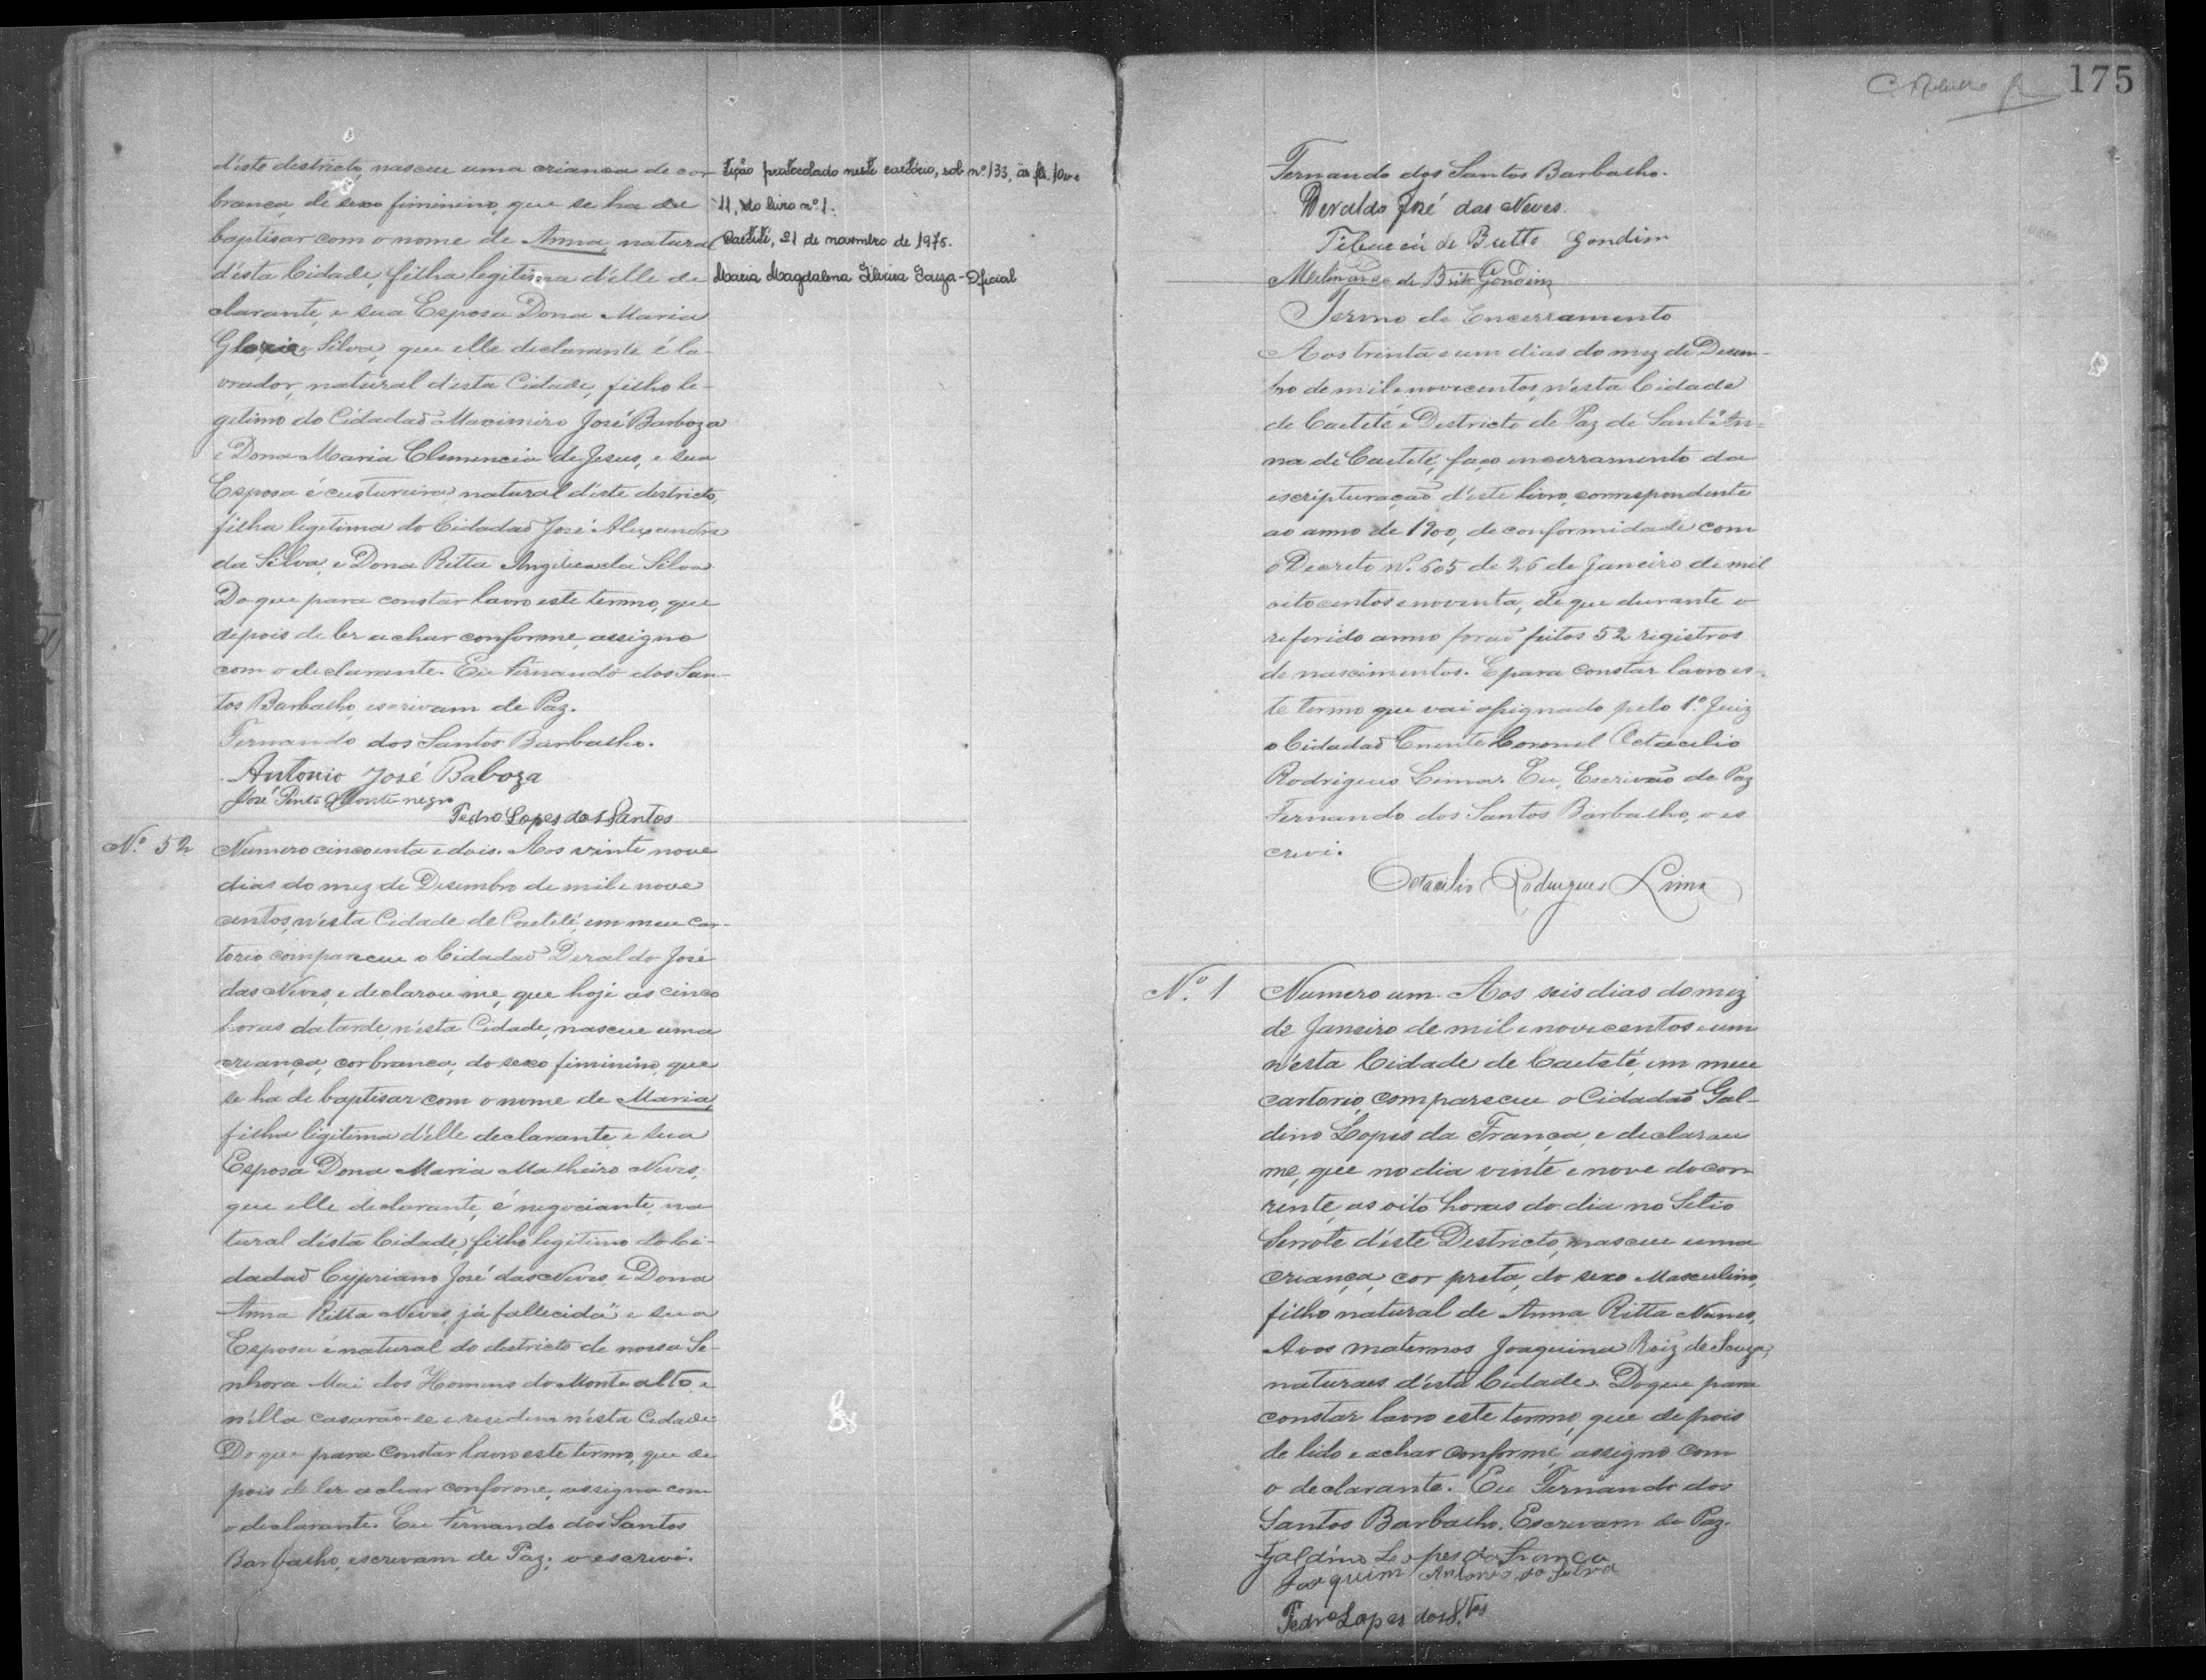 d'este destricto, nasceu uma criança de cor
branca, de sexo fiminino, que se ha de
baptisar com o nome de Anna, natural
d'esta Cidade, filha legitima d'elle de
clarante, e sua Esposa Dona Maria
Gloria e Silva, que elle declarante é la-
vrador, natural d'esta Cidade, filho le-
getimo do Cidadaõ Maximiro José Barboza
e Dona Maria Clemencia de Jesus, e sua
Esposa é custureira, natural d'este destricto,
filha legitima do Cidadaõ José Alexandre
da Silva, e Dona Ritta Angelica da Silva
Do que para constar lavro este termo, que
depois de ler e achar conforme, assigno
com o declarante. Eu Fernando dos San-
tos Barbalho, escrivam de Paz.
Fernando dos Santos Barbalho.
Antonio José Baboza
José Pinto Montenegro
Pedro Lopes dos Santos
tição protocolado neste cartório, sob nº 133, às fls. 10v e
11, do livro nº 1.
Caetité, 21 de novembro de 1975.
Maria Magdalena Silveira Souza - Oficial
Nº 52 Numero cincoenta e dois. Aos vinte nove
dias do mez de Desembro de mil e nove
centos, n'esta Cidade de Caetité, em meu Car-
torio compareceu o Cidadaõ Deraldo José
das Neves, e declarou me, que hoje as cinco
horas da tarde, n'esta Cidade, nasceu uma
criança, cor branca, do sexo fiminino, que
se ha de baptisar com o nome de Maria,
filha ligitima d'elle declarante, e sua
Esposa Dona Maria Malheiro Neves,
que elle declarante, é negociante, na
tural d'esta Cidade, filho legitimo do Ci-
dadaõ Cypriano José das Neves, e Dona
Anna Ritta Neves, "já fallecida" e sua
Esposa é natural do destricto de nossa Se-
nhora Mai dos Homens do Monte alto, e
n'ella casarão-se e residem n'esta Cidade
Do que para Constar lavro este termo, que de
pois de ler e achar conforme, assigna com
o declarante. Eu Fernando dos Santos
Barbalho, escrevam de Paz, o escrevi.
175
Fernando dos Santos Barbalho.
Deraldo José das Neves.
de Britto Gondim
de Brito Gondim
Termo de Encerramento
Aos trinta e um dias do mez de Desem-
bro de mil e novecentos, n'esta Cidade
de Caetité e Destricto de Paz de Sant'An-
na de Caetité, faço encerramento da
escripturação d'este livro, correspondente
ao anno de 1900, de conformidade com
o Decreto Nº. 605 de 26 de Janeiro de mil
oitocentos e noventa, de que durante o
referido anno foraõ feitos 52 registros
de nascimentos. E para constar lavro es-
te termo que vai assignado pelo 1º. Juiz
o Cidadaõ Tenente Coronel Octacilio
Rodrigues Lima. Eu, Escrivão de Paz
Fernando dos Santos Barbalho, o es
crevi.
Octacilio Rodrigues Lima
Nº. 1 Numero um. Aos seis dias do mez
de Janeiro de mil e novecentos e um
n'esta Cidade de Caeteté, em meu
cartorio, compareceu o Cidadaõ Gal-
dino Lopes da França, e declarou
me, que no dia vinte e nove do cor
rente, as oito horas do dia no Sitio
Serrote d'este Destricto, nasceu uma
criança, cor preta, do sexo Masculino,
filho natural de Anna Ritta Nunes,
Avos maternos Joaquina Roiz de Souza,
naturaes d'esta Cidade. Do que para
constar lavro este termo, que depois
de lido e achar Conforme, assigno com
o declarante. Eu Fernando dos
Santos Barbalho, Escrevam de Paz.
Galdino Lopes da França
Joaquim Antonio da Silva
Pedro Lopes dos S.tos